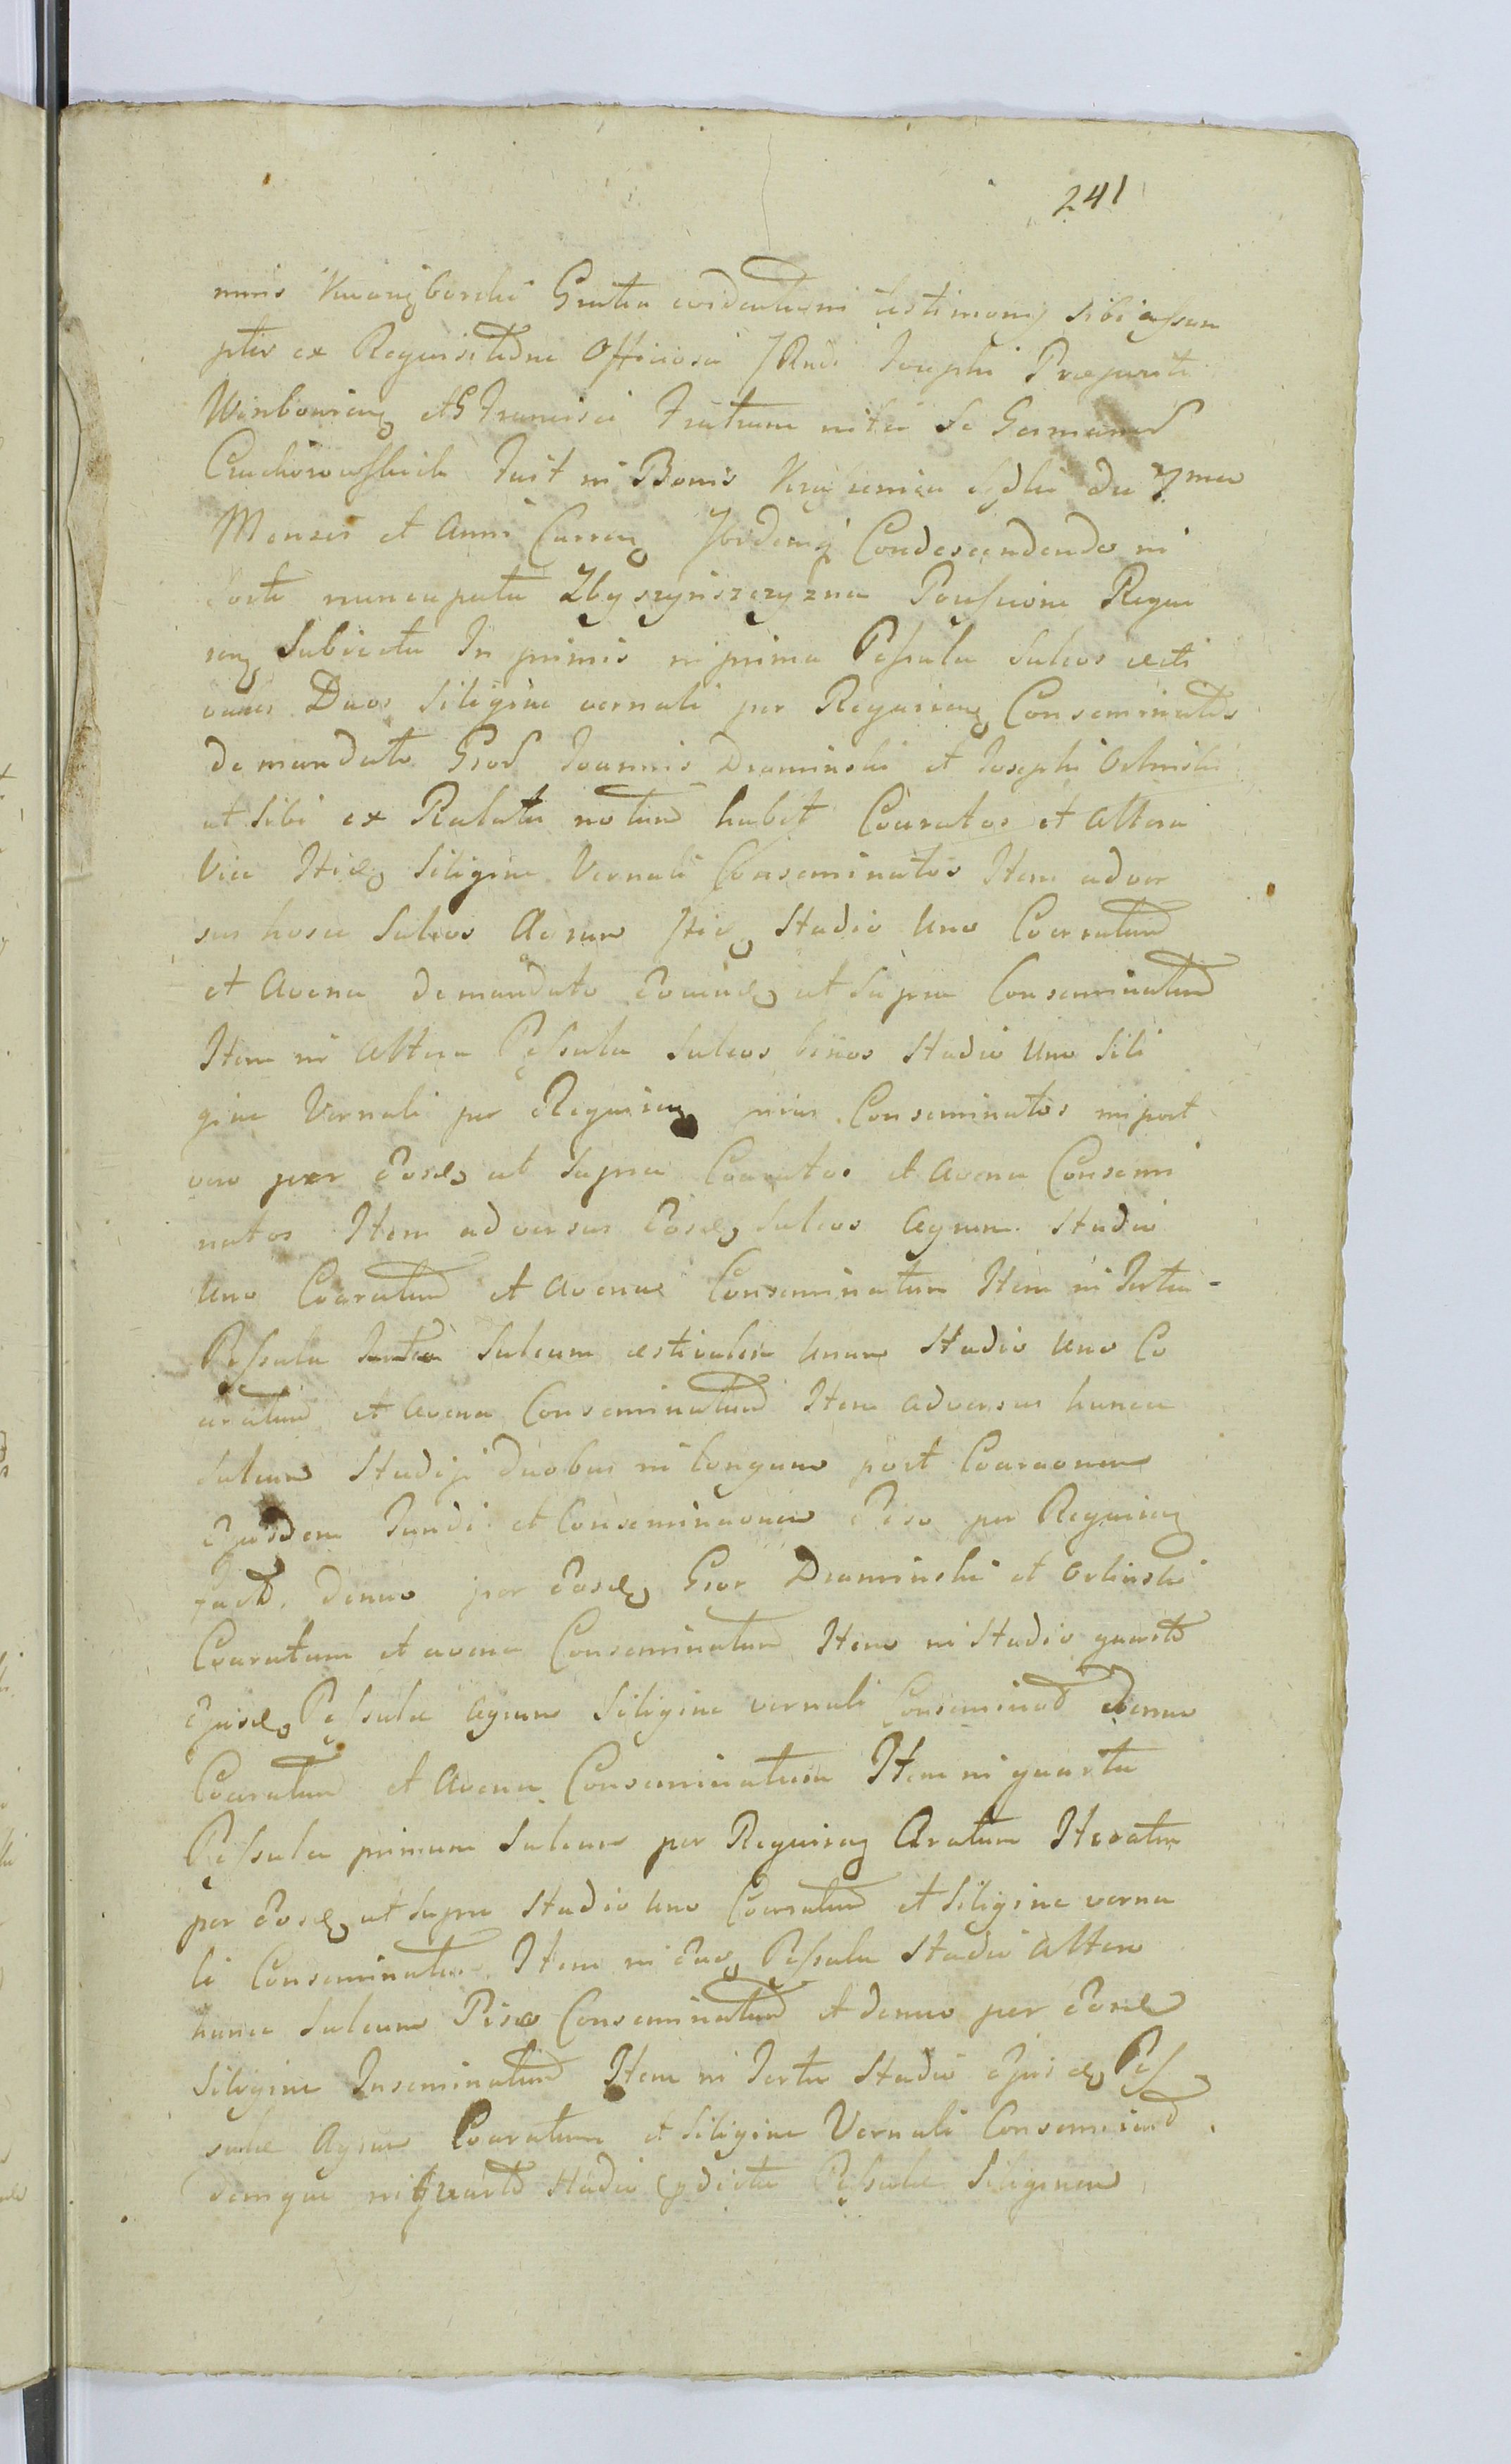 241
nnis Gratia evidentioris testimonij sibi assum
ptis ex Requisitione Officiosa Josephi Præpositi
et Francisci Fratrum inter se Germanor
Fuit in Bonis die 7ma
Mensis et Anni Curren Ibidemq Condescendendo in
Sorte nuncupata Zbyszynszczyzna Possessioni Requi
ren Subiecta In primis in prima Pessula Sulcos æsti
vales Duos Siligine vernali per Requiren Conseminatos
de mandato Gsor Joannis Dramiński et Josephi Orliński
ut Sibi ex Relatu notum habet Coaratos et altera
vice Siligine Vernali Conseminatos Item adver
sus hosce Sulcos Agrum Studio Uno Coaratum
et Avena de mandato ut Supra Conseminatum
Item in altera Pessula Sulcos binos Studio Uno Sili
gine Vernali per Requiren Conseminatos in post
vero per Eosd ut Supra Coaratos et Avena Consemi
natos Item adversus Eosd Sulcos Agrum Studio
Uno Coaratum et Avena Conseminatum Item in Tertia
Pessula Sulcum æstivalem Unum Studio Uno Co
aratum et Avena Conseminatum Item adversus hunce
Sulcum Studijs Duobus in longum post Coaraonem
Ejusdem Fundi et Conseminaonem Piso per Requiren
fact. Denuo per Eosd Gsor Dramiński et Orliński
Coaratum et avena Conseminatum Item in Studio quarto
Ejusd Pessulæ Agrum Siligine vernali Conseminat Denuo
Coaratum et Avena Conseminatum Item in quarta
Pessula primum Sulcum per Requiren Aratum Iteratim
per Eosd ut Supra Studio Uno Coaratum et Siligine verna
li Conseminatum Item in Ead Pessula Studio Altero
hunce Sulcum Piso Conseminatum et Denuo per Eosd
Siligine Inseminatum Item in Tertio Studio Ejusd Pes
sulæ Agrum Coaratum et Siligine Vernali Conseminat
Denique in quarto Studio dictæ Pessulæ Siliginem